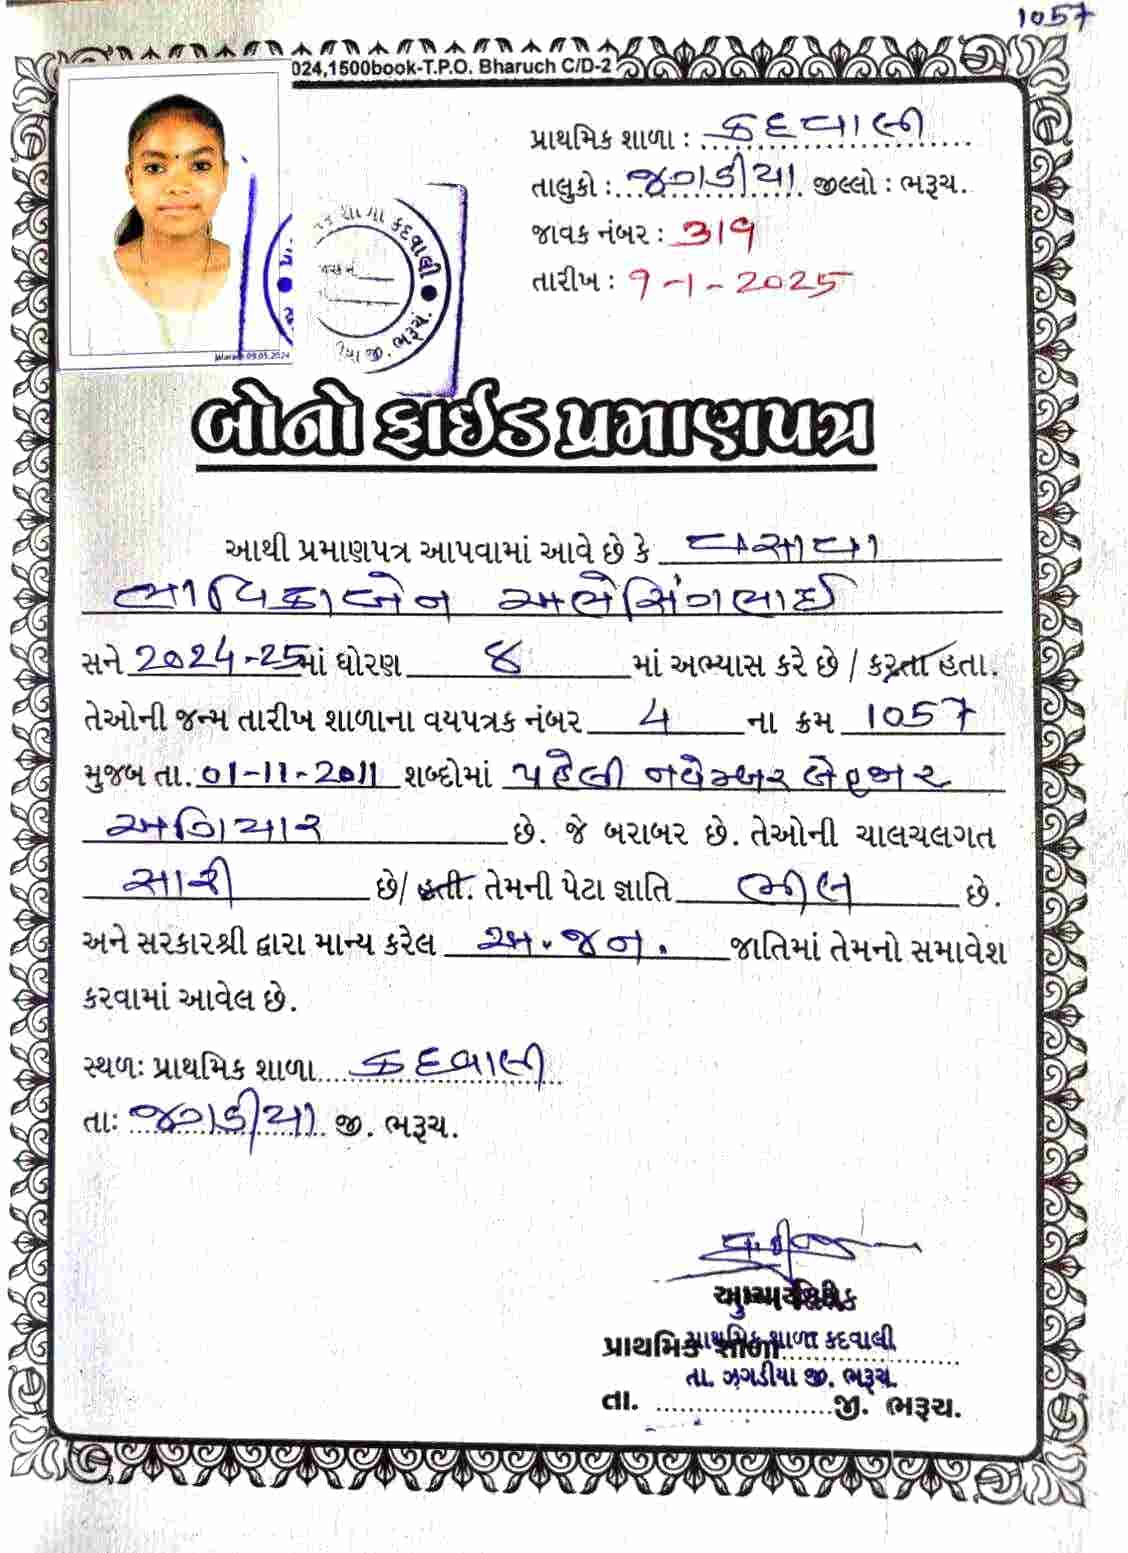 1057
024,1500book-T.P.O. Bharuch C/D-2
પ્રાથમિક શાળા : કદવાલી
તાલુકો : ઝગડીયા જીલ્લો : ભરૂચ.
જાવક નંબર : 319
તારીખ : 9-1-2025
કદવાલી
જી. ભરૂચ.
09.05.2024
બોનોફાઈડ પ્રમાણપત્ર
આથી પ્રમાણપત્ર આપવામાં આવે છે કે વસાવા
ભાવિકાબેન અભેસિંગભાઈ
સને 2024-25માં ધોરણ ૪ માં અભ્યાસ કરે છે / કરતા હતા.
તેઓની જન્મ તારીખ શાળાના વયપત્રક નંબર 4 ના ક્રમ 1057
મુજબ તા. 01-11-2011 શબ્દોમાં પહેલી નવેમ્બર બેહજાર
અગિયાર છે. જે બરાબર છે. તેઓની ચાલચલગત
સારી છે/ હતી. તેમની પેટા જ્ઞાતિ ભીલ છે.
અને સરકારશ્રી દ્વારા માન્ય કરેલ અ.જન. જાતિમાં તેમનો સમાવેશ
કરવામાં આવેલ છે.
સ્થળઃ પ્રાથમિક શાળા કદવાલી
તાઃ ઝગડીયા જી. ભરૂચ.
પ્રાથમિક શાળા પ્રાથમિક શાળા કદવાલી
તા. ઝગડીયા જી. ભરૂચ.
તા. જી. ભરૂચ.